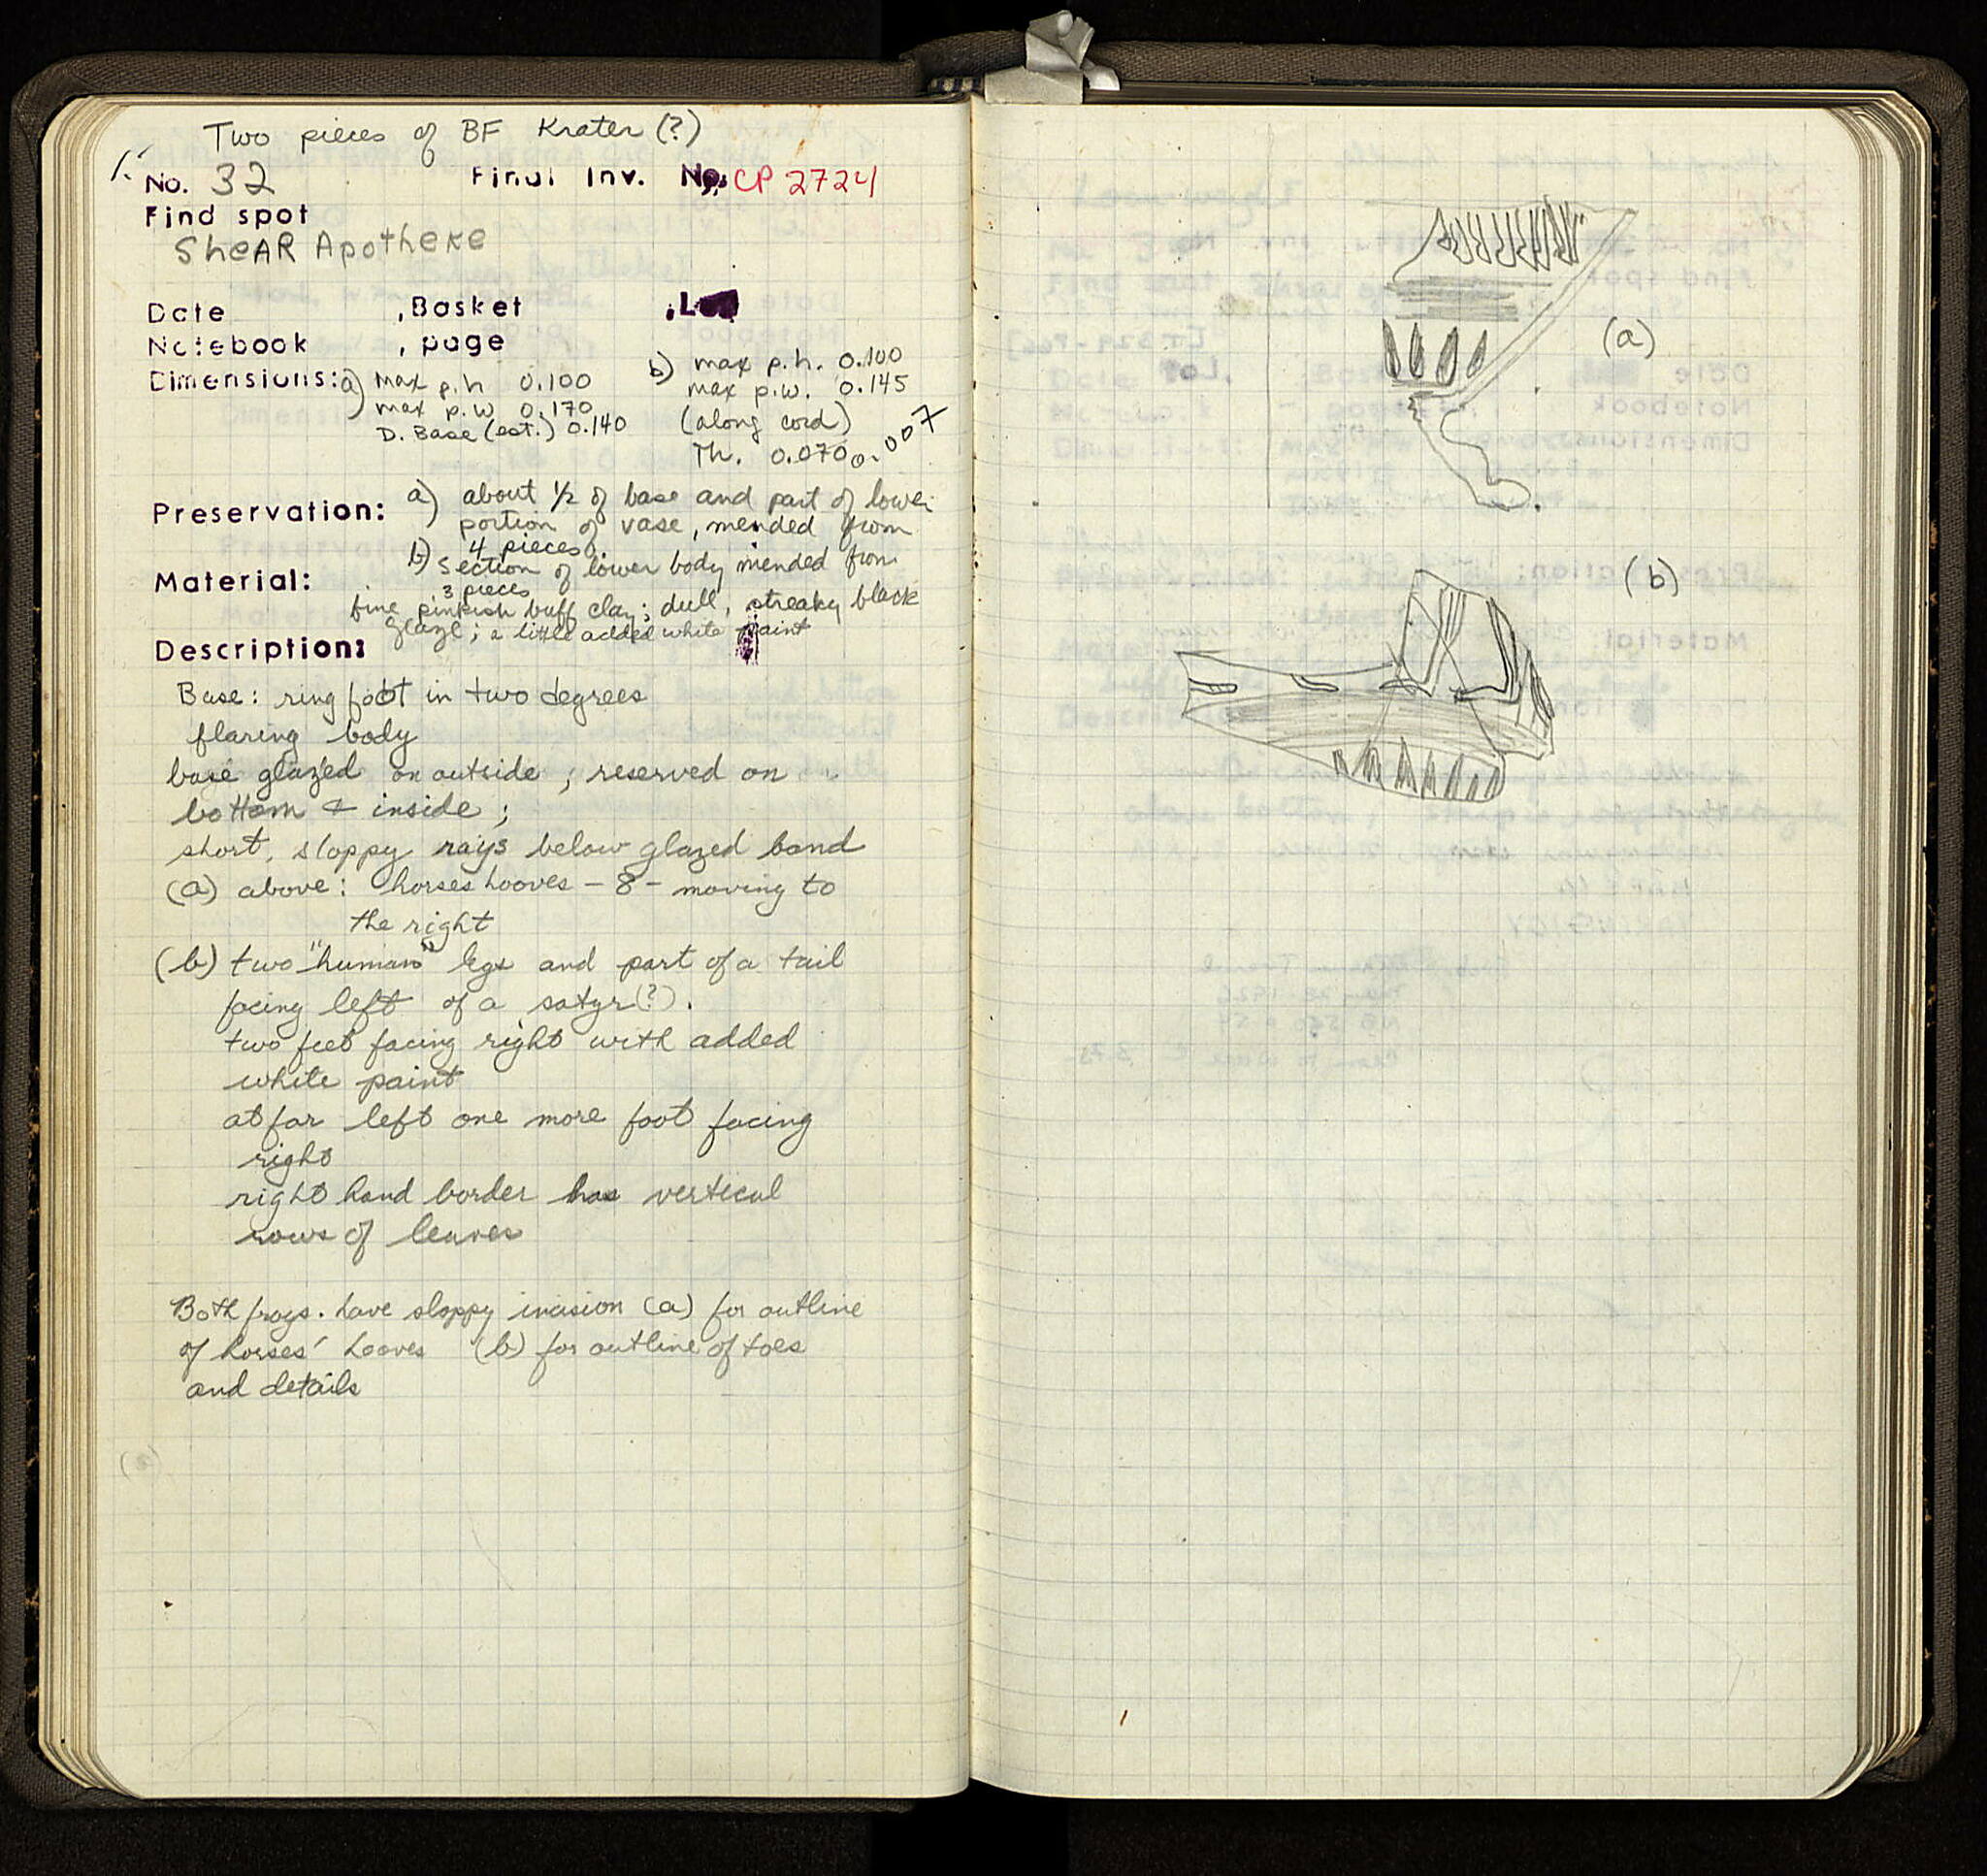 Two pieces of BF Krater (?)
No. 32 Final Inv. No. CP 2724
Find spot
Shear Apotheke
Date , Basket , Lot
Notebook , page
Dimensions: a) max p.h 0.100
max p.w 0.170
D. Base (est.) 0.140
b) max p.h. 0.100
max p.w. 0.145
(along cord)
Th. 0.070 0.007
Preservation: a) about 1/2 of base and part of lower
portion of vase, mended from
4 pieces.
b) section of lower body mended from
3 pieces
Material:
fine pinkish buff clay; dull, streaky black
glaze; a little added white paint
Description:
Base: ring foot in two degrees
flaring body
base glazed on outside; reserved on
bottom & inside;
short, sloppy rays below glazed band
(a) above: horses hooves - 8 - moving to
the right
(b) two "human" legs and part of a tail
facing left of a satyr(?).
two feet facing right with added
white paint
at far left one more foot facing
right
right hand border has vertical
rows of leaves
Both frags. have sloppy incision (a) for outline
of horses' hooves (b) for outline of toes
and details
(a)
(b)